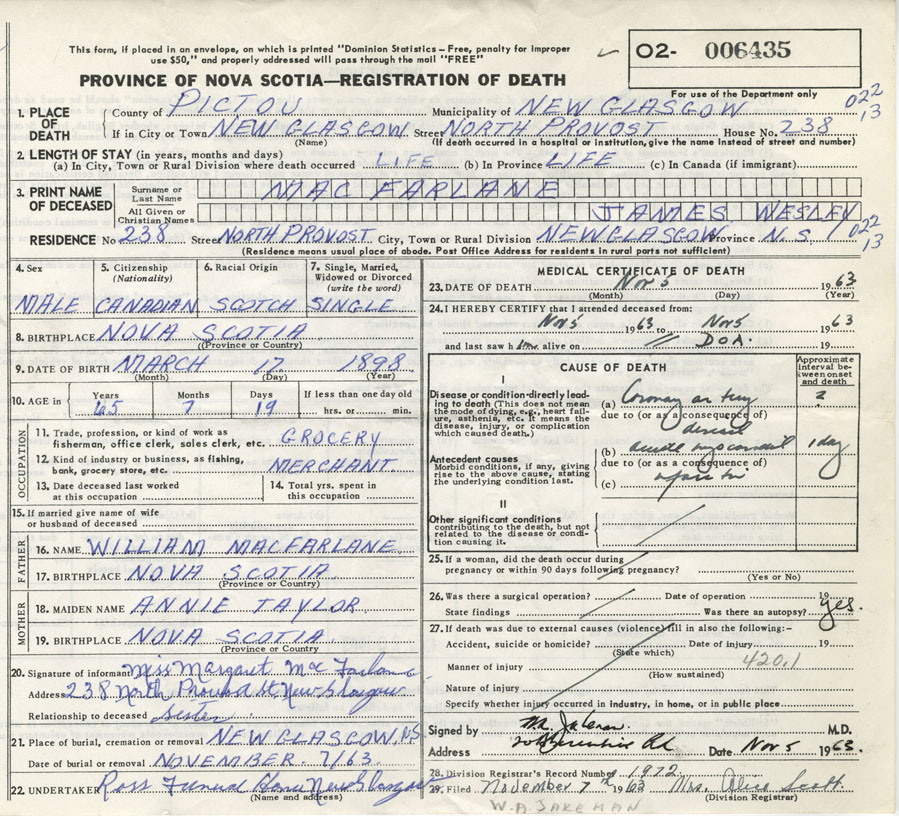 This form, if placed in an envelope, on which is printed "Dominion Statistics – Free, penalty for improper
use $50," and properly addressed will pass through the mail "FREE"
O2- 006435
PROVINCE OF NOVA SCOTIA—REGISTRATION OF DEATH
For use of the Department only
1. PLACE OF DEATH County of PICTOU Municipality of NEW GLASGOW 022
If in City or Town NEW GLASGOW Street NORTH PROVOST House No. 238 13
(Name) (If death occurred in a hospital or institution, give the name instead of street and number)
2. LENGTH OF STAY (in years, months and days)
(a) In City, Town or Rural Division where death occurred LIFE (b) In Province LIFE (c) In Canada (if immigrant)
3. PRINT NAME OF DECEASED Surname or Last Name MAC FARLANE
All Given or Christian Names JAMES WESLEY
RESIDENCE No 238 Street NORTH PROVOST City, Town or Rural Division NEW GLASGOW Province N.S. 022
13
(Residence means usual place of abode. Post Office Address for residents in rural parts not sufficient)
4. Sex MALE
5. Citizenship (Nationality) CANADIAN
6. Racial Origin SCOTCH
7. Single, Married, Widowed or Divorced (write the word) SINGLE
8. BIRTHPLACE NOVA SCOTIA
(Province or Country)
9. DATE OF BIRTH MARCH 17 1898
(Month) (Day) (Year)
10. AGE in Years 65 Months 7 Days 19 If less than one day old
hrs. or min.
OCCUPATION
11. Trade, profession, or kind of work as
fisherman, office clerk, sales clerk, etc. GROCERY
12. Kind of industry or business, as fishing,
bank, grocery store, etc. MERCHANT
13. Date deceased last worked
at this occupation
14. Total yrs. spent in
this occupation
15. If married give name of wife
or husband of deceased
FATHER
16. NAME WILLIAM MACFARLANE
17. BIRTHPLACE NOVA SCOTIA
(Province or Country)
MOTHER
18. MAIDEN NAME ANNIE TAYLOR
19. BIRTHPLACE NOVA SCOTIA
(Province or Country)
20. Signature of informant Miss Margaret MacFarlane
Address 238 North Provost St. New Glasgow
Relationship to deceased Sister
21. Place of burial, cremation or removal NEW GLASGOW, N.S
Date of burial or removal NOVEMBER 7/63
22. UNDERTAKER Ross Funeral Home New Glasgow
(Name and address)
MEDICAL CERTIFICATE OF DEATH
23. DATE OF DEATH Nov 5 1963
(Month) (Day) (Year)
24. I HEREBY CERTIFY that I attended deceased from:
Nov 5 1963 to Nov 5 1963
and last saw him alive on // DOA. 19
CAUSE OF DEATH
Approximate
interval be-
tween onset
and death
I
Disease or condition directly lead-
ing to death (This does not mean
the mode of dying, e.g., heart fail-
ure, asthenia, etc. It means the
disease, injury, or complication
which caused death.)
(a) Coronary artery ?
due to (or as a consequence of)
disease
Antecedent causes
Morbid conditions, if any, giving
rise to the above cause, stating
the underlying condition last.
(b) acute myocardial 1 day
due to (or as a consequence of)
(c)
II
Other significant conditions
contributing to the death, but not
related to the disease or condi-
tion causing it.
25. If a woman, did the death occur during
pregnancy or within 90 days following pregnancy?
(Yes or No)
26. Was there a surgical operation? Date of operation 19
State findings Was there an autopsy? yes.
27. If death was due to external causes (violence) fill in also the following:–
Accident, suicide or homicide? Date of injury 19
(State which)
Manner of injury 420.1
(How sustained)
Nature of injury
Specify whether injury occurred in industry, in home, or in public place
Signed by M.D.
Address Date Nov 5 1963.
28. Division Registrar's Record Number 1972
29. Filed November 7th 1963 Mrs. Alice Scott
(Division Registrar)
W.A. JAKEMAN